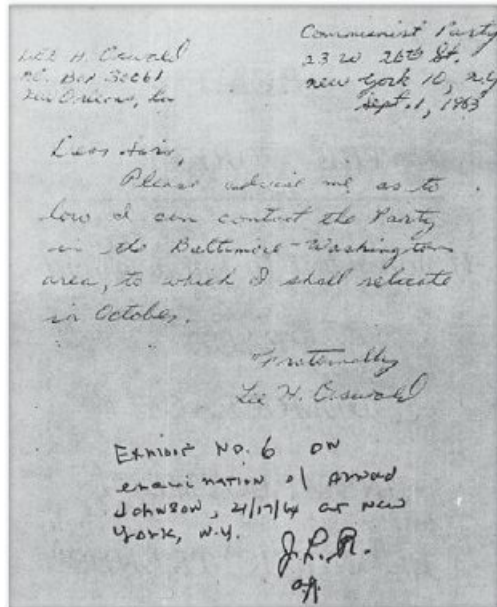 Lee H. Oswald
P.O. Box 30061
New Orleans, La
Communist Party
23 W 26th St.
New York 10, N.Y
Sept. 1, 1963
Dear Sirs,
Please advise me as to
how I can contact the Party
in the Baltimore-Washington
area, to which I shall relocate
in October.
Fraternally
Lee H. Oswald
Exhibit No. 6 on
examination of Arnold
Johnson, 4/17/64 at New
York, N.Y.
J.L.R.